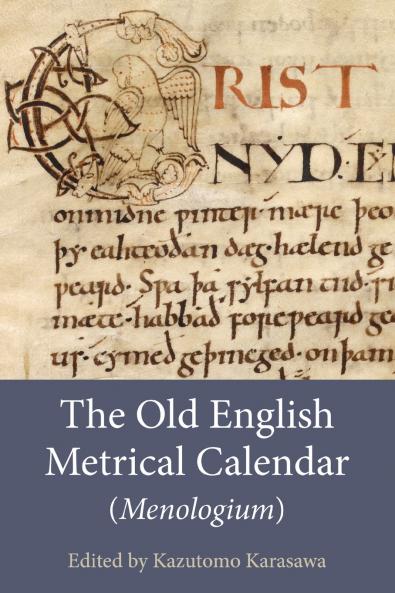 CRIST
NYD·
on midne ƿinter· mære þeo
þy· eahteoðan dæg· hælend ge
ƿeard· Sƿa þa sylfan tiid·
mæte· habbað foreƿeard gea
us· cymeð geþincged· on þam
The Old English
Metrical Calendar
(Menologium)
Edited by Kazutomo Karasawa